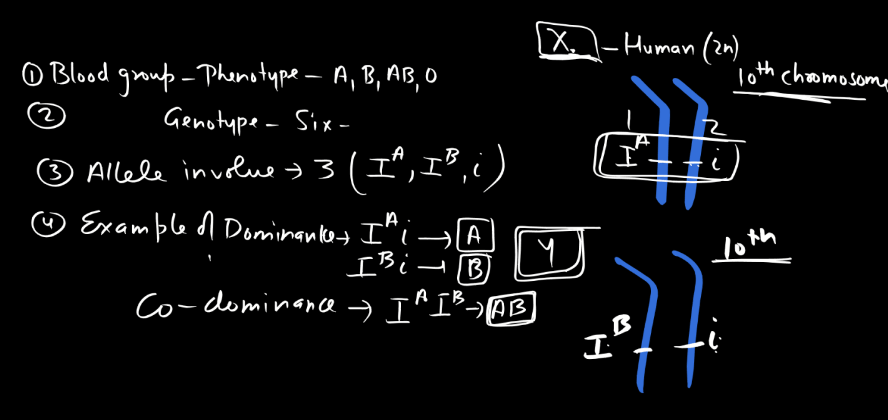 ① Blood group - Phenotype - A, B, AB, O
② Genotype - Six -
③ Allele involve → 3 (Iᴬ, Iᴮ, i)
④ Example of Dominance → Iᴬi → A
Iᴮi → B
Co-dominance → IᴬIᴮ → AB
Y
X. - Human (2n)
10th chromosome
1 2
Iᴬ - - i
10th
Iᴮ - - i